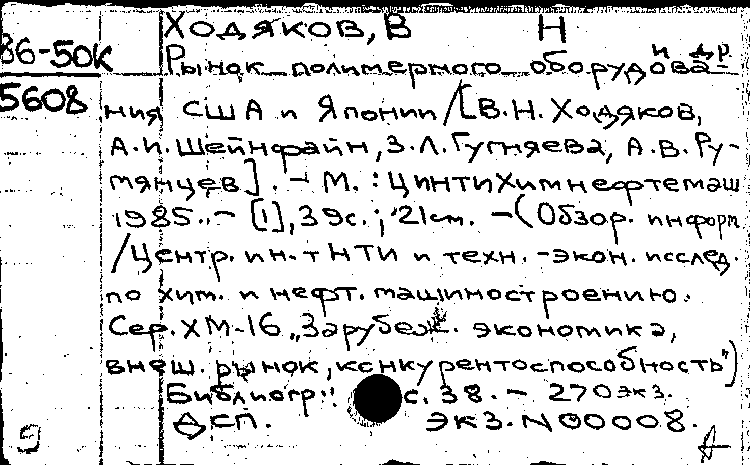 Ходяков, В Н
86-50К
и др.
Рынок полимерного оборудова-
5608
ния США и Японии / [В.Н. Ходяков,
А.И. Шейнфайн, З.Л. Гугняева, А.В. Ру-
мянцев]. – М. : ЦИНТИхимнефтемаш
1985. – [1], 39с. ; 21см. – (Обзор. информ
/Центр. ин-т НТИ и техн.-экон. исслед.
по хим. и нефт. машиностроению.
Сер. ХМ-16 „Зарубеж. экономика,
внеш. рынок, конкурентоспособность")
Библиогр.: с. 38. – 270 экз.
ДСП. экз. N 00008.
9